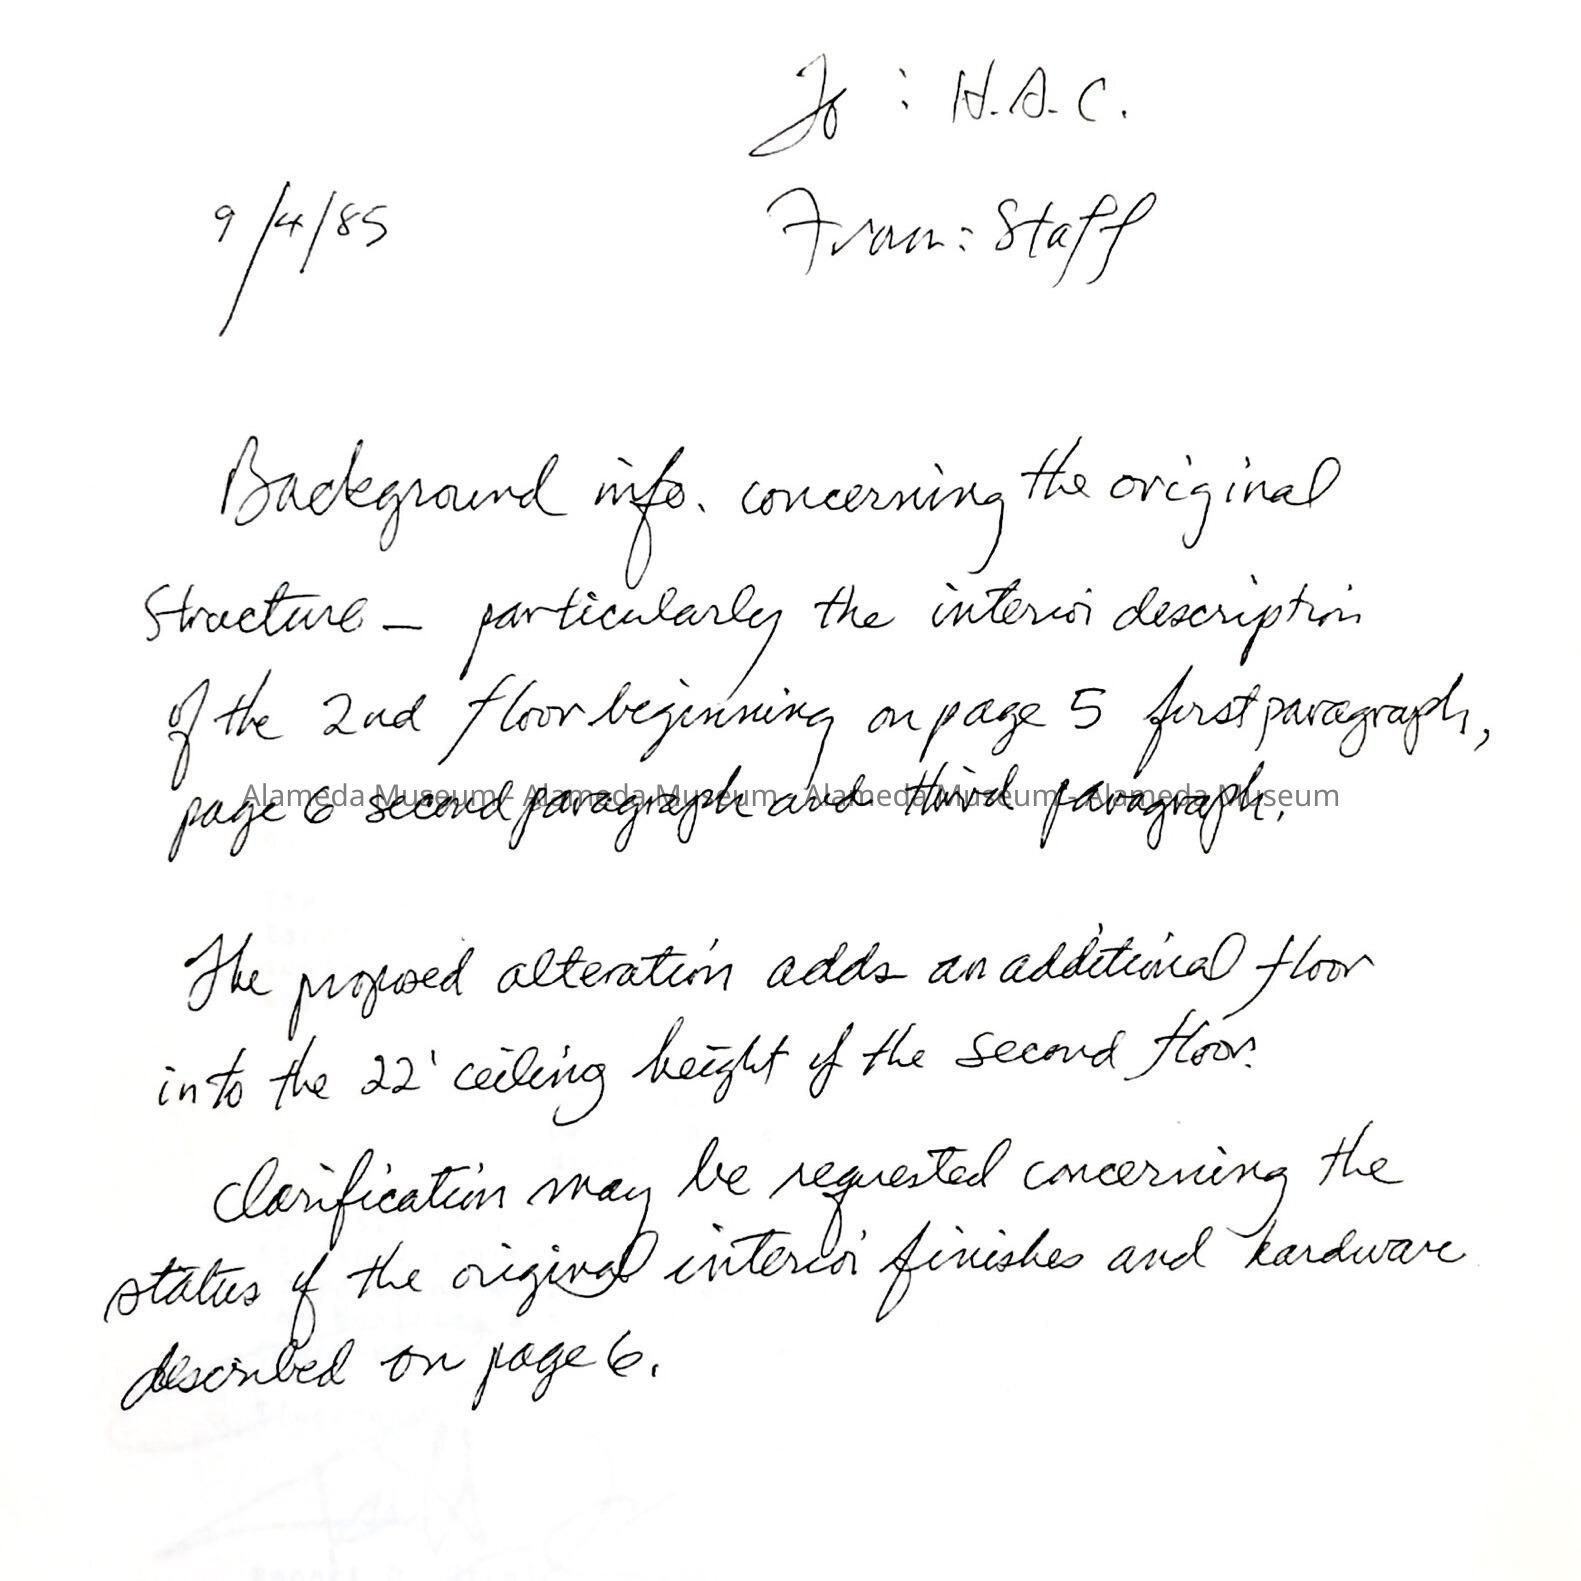 To : H.A.C.
9/4/85
From: Staff
Background info. concerning the original
Structure — particularly the interior description
of the 2nd floor beginning on page 5 first paragraph,
page 6 second paragraph and third paragraph.
Alameda Museum - Alameda Museum - Alameda Museum - Alameda Museum
The proposed alteration adds an additional floor
into the 22' ceiling height of the second floor.
Clarification may be requested concerning the
status of the original interior finishes and hardware
described on page 6.